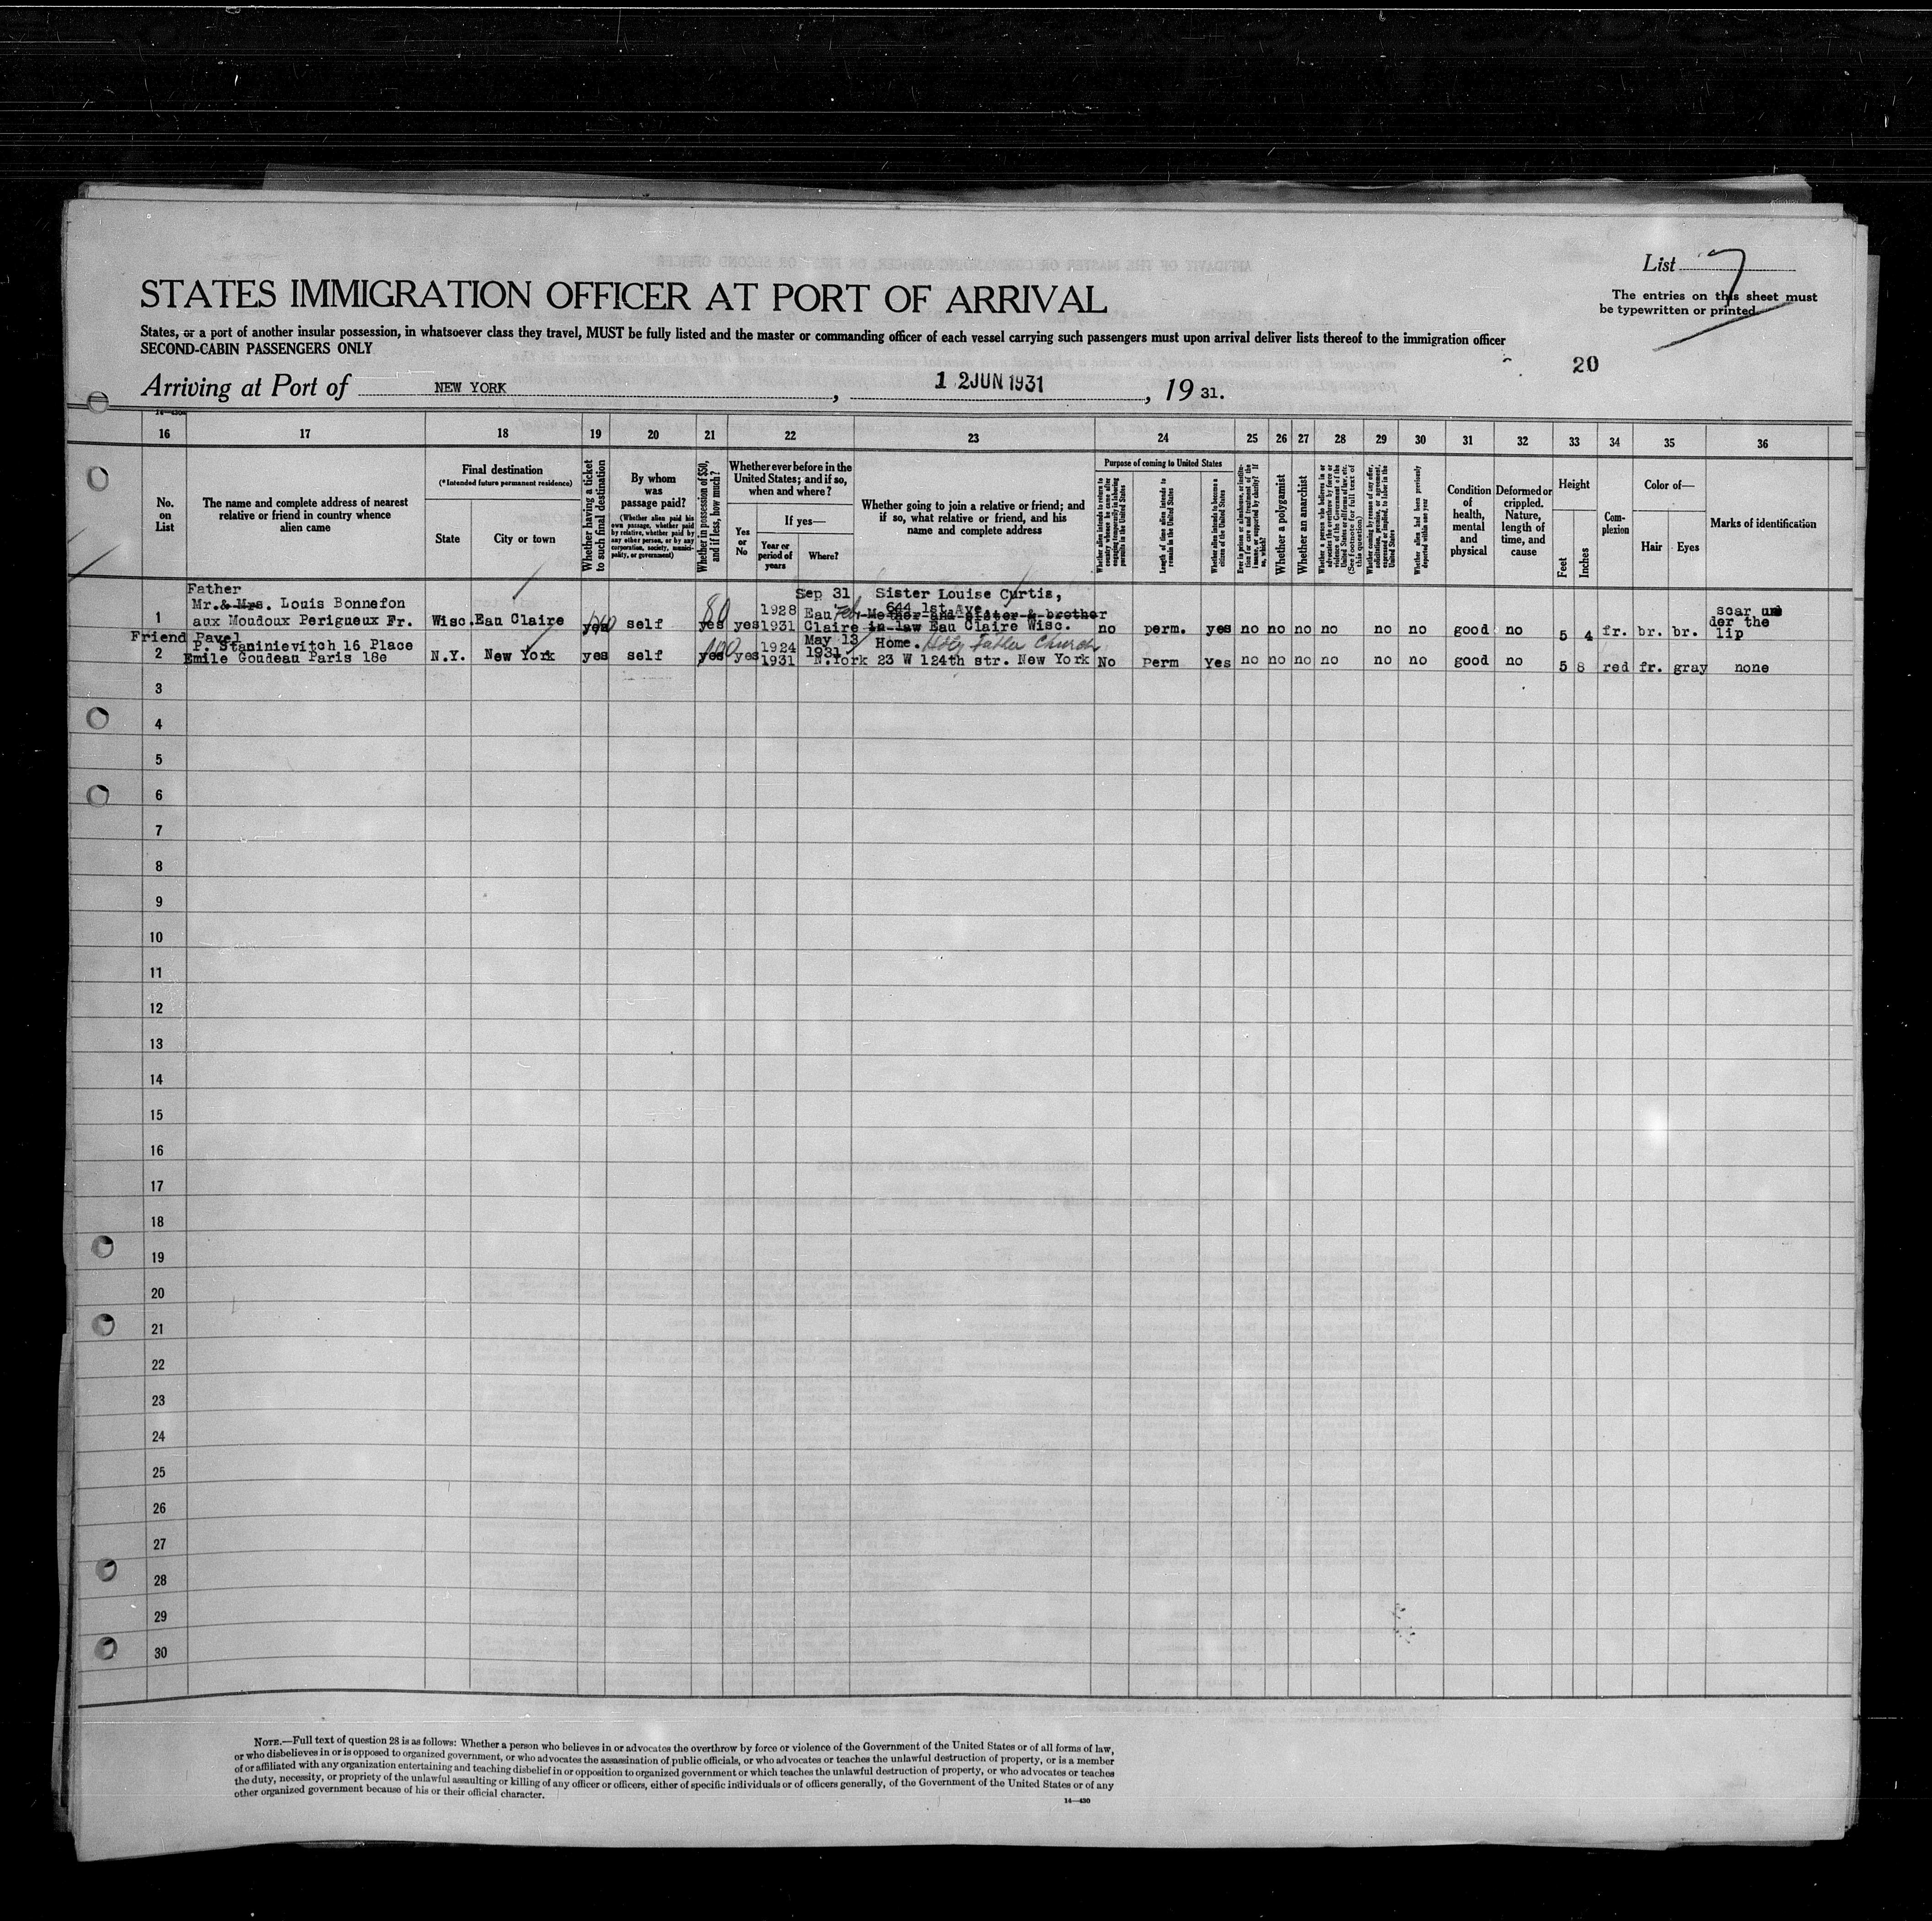 List 7
STATES IMMIGRATION OFFICER AT PORT OF ARRIVAL
The entries on this sheet must
be typewritten or printed
States, or a port of another insular possession, in whatsoever class they travel, MUST be fully listed and the master or commanding officer of each vessel carrying such passengers must upon arrival deliver lists thereof to the immigration officer
SECOND-CABIN PASSENGERS ONLY
20
Arriving at Port of NEW YORK, 12 JUN 1931, 19 31.
14—430
16 17 18 19 20 21 22 23 24 25 26 27 28 29 30 31 32 33 34 35 36
No.
on
List
The name and complete address of nearest
relative or friend in country whence
alien came
Final destination
(*Intended future permanent residence)
State
City or town
Whether having a ticket
to such final destination
By whom
was
passage paid?
(Whether alien paid his
own passage, whether paid
by relative, whether paid by
any other person, or by any
corporation, society, munici-
pality, or government)
Whether in possession of $50,
and if less, how much?
Whether ever before in the
United States; and if so,
when and where?
Yes
or
No
If yes—
Year or
period of
years
Where?
Whether going to join a relative or friend; and
if so, what relative or friend, and his
name and complete address
Purpose of coming to United States
Whether alien intends to return to
country whence he came after
engaging temporarily in laboring
pursuits in the United States
Length of time alien intends to
remain in the United States
Whether alien intends to become a
citizen of the United States
Ever in prison or almshouse, or institu-
tion for care and treatment of the
insane, or supported by charity? If
so, which?
Whether a polygamist
Whether an anarchist
Whether a person who believes in or
advocates the overthrow by force or
violence of the Government of the
United States or all forms of law, etc.
(See footnote for full text of
this question)
Whether coming by reason of any offer,
solicitation, promise, or agreement,
expressed or implied, to labor in the
United States
Whether alien had been previously
deported within one year
Condition
of
health,
mental
and
physical
Deformed or
crippled.
Nature,
length of
time, and
cause
Height
Feet
Inches
Com-
plexion
Color of—
Hair
Eyes
Marks of identification
Father
Mr. & Mrs. Louis Bonnefon
1 aux Moudoux Perigueux Fr. Wisc. Eau Claire yes self yes 80 yes 1928 1931
Sep 31
Eau
Claire
Sister Louise Curtis,
644 1st Ave
Mother and sister & brother
in-law Eau Claire Wisc.
no perm. yes no no no no no no good no 5 4 fr. br. br.
scar un
der the
lip
Friend Pavel
P. Staninievitch 16 Place
2 Emile Goudeau Paris 18e N.Y. New York yes self yes 100 yes 1924 1931
May 13
1931
N.York
Home. Holy Father Church
23 W 124th str. New York
No Perm Yes no no no no no no good no 5 8 red fr. gray none
3
4
5
6
7
8
9
10
11
12
13
14
15
16
17
18
19
20
21
22
23
24
25
26
27
28
29
30
NOTE.—Full text of question 28 is as follows: Whether a person who believes in or advocates the overthrow by force or violence of the Government of the United States or of all forms of law,
or who disbelieves in or is opposed to organized government, or who advocates the assassination of public officials, or who advocates or teaches the unlawful destruction of property, or is a member
of or affiliated with any organization entertaining and teaching disbelief in or opposition to organized government or which teaches the unlawful destruction of property, or who advocates or teaches
the duty, necessity, or propriety of the unlawful assaulting or killing of any officer or officers, either of specific individuals or of officers generally, of the Government of the United States or of any
other organized government because of his or their official character.
14—430